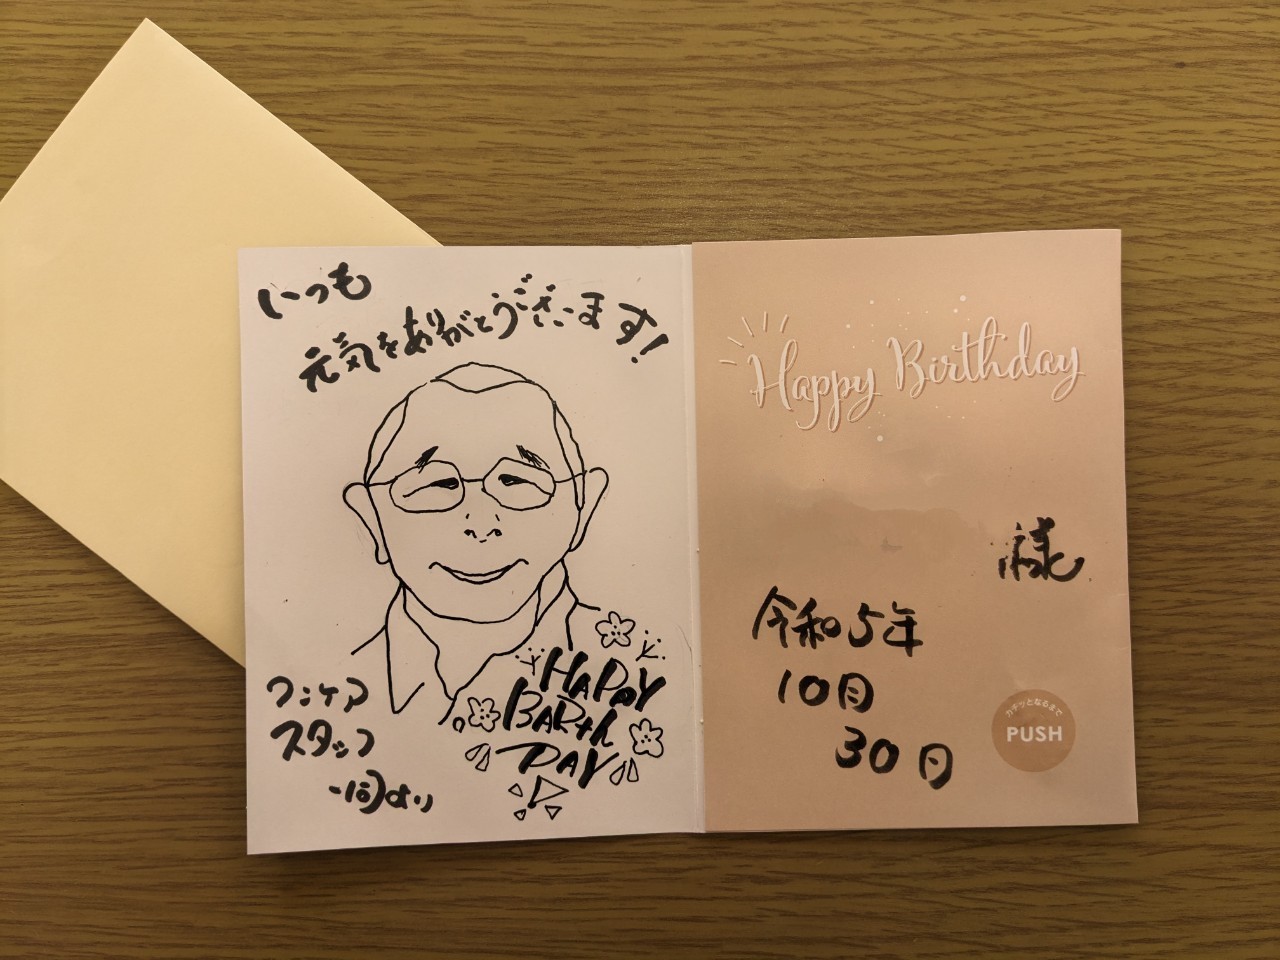 いつも
元気をありがとうございます!
HAPPY
BARth
DAY!
ワンケア
スタッフ
一同より
Happy Birthday
様
令和5年
10月
30日
カチッとなるまで
PUSH